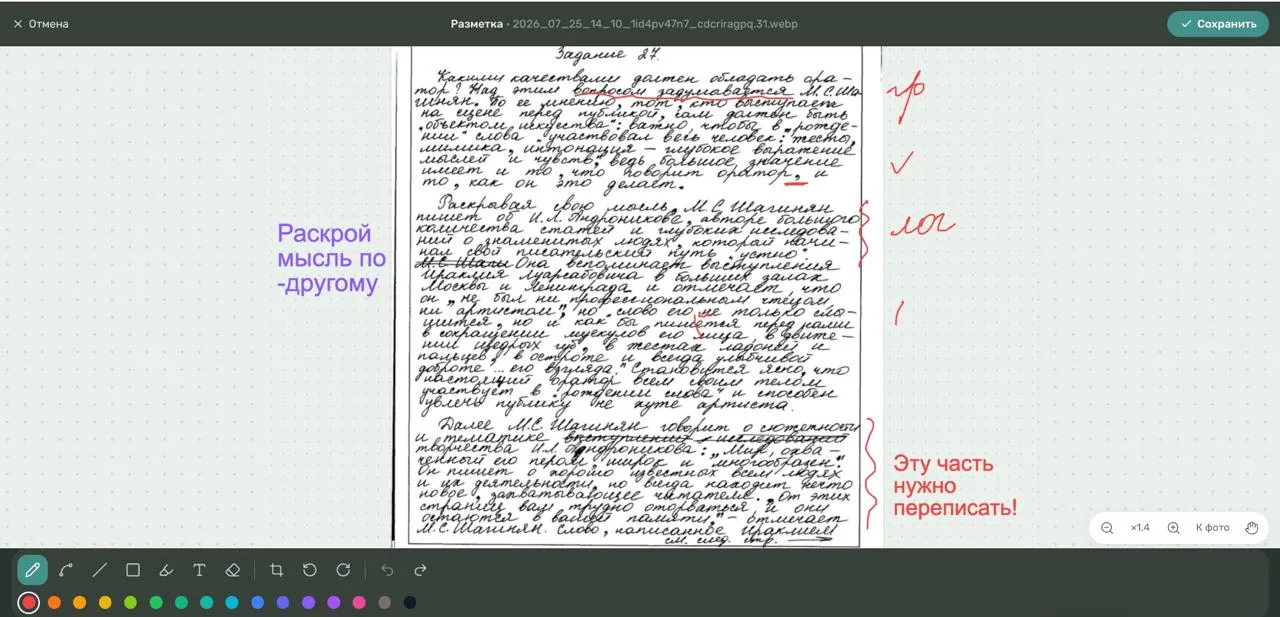 Отмена
Разметка • 2026_07_25_14_10_1id4pv47n7_cdcriragpq.31.webp
Сохранить
Задание 27.
Какими качествами должен обладать ора-
тор? Над этим вопросом задумывается М.С.Ша-
гинян. По ее мнению, тот, кто выступает
на сцене перед публикой, сам должен быть
„объектом искусства": важно, чтобы в „рожде-
нии" слова „участвовал весь человек: жесты,
мимика, интонация – глубокое выражение
мыслей и чувств", ведь большое значение
имеет и то, что говорит оратор, и
то, как он это делает.
Раскрывая свою мысль, М.С. Шагинян
пишет об И.Л. Андроникове, авторе большого
количества статей и глубоких исследова-
ний о знаменитых людях, который начи-
нал свой писательский путь „устно".
Она вспоминает выступления
Ираклия Луарсабовича в больших залах
Москвы и Ленинграда и отмечает, что
он „не был ни профессиональным чтецом,
ни артистом", но „слово его не только слы-
шится, но и как бы пишется перед нами
в сокращении мускулов его лица, в движе-
нии щедрых губ, в жестах ладоней и
пальцев, в остроте и всегда улыбчивой
доброте ... его взгляда." Становится ясно, что
настоящий оратор всем своим телом
участвует в „рождении слова" и способен
увлечь публику не хуже артиста.
Далее М.С. Шагинян говорит о сюжетности
и тематике выступлений и исследований
творчества И.Л. Андроникова: „Мир, охва-
ченный его пером, широк и многообразен."
Он пишет о хорошо известных всем людях
и их деятельности, но всегда находит нечто
новое, захватывающее читателя. „От этих
страниц вам трудно оторваться, и они
остаются в вашей памяти," – отмечает
М.С. Шагинян. Слово, написанное Ираклием
см. след. стр.
Раскрой
мысль по
-другому
гр
лог
Эту часть
нужно
переписать!
×1.4
К фото
T